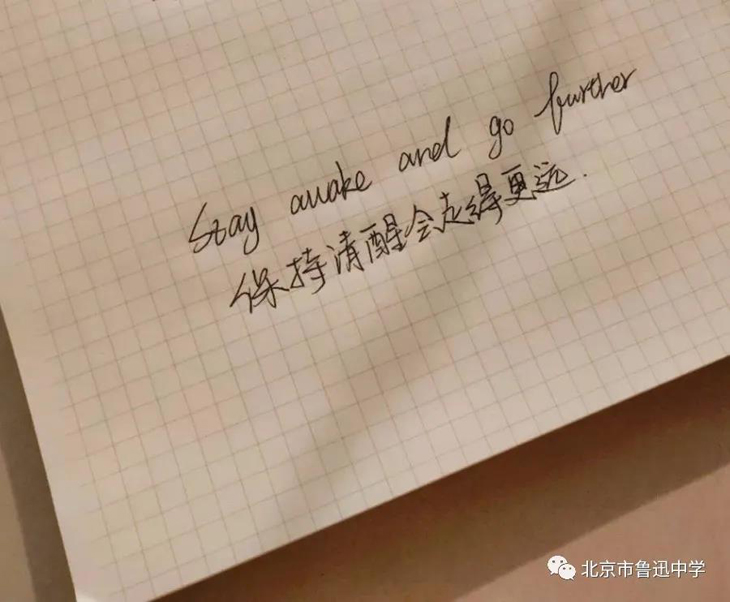 Stay awake and go further
保持清醒会走得更远.
北京市鲁迅中学